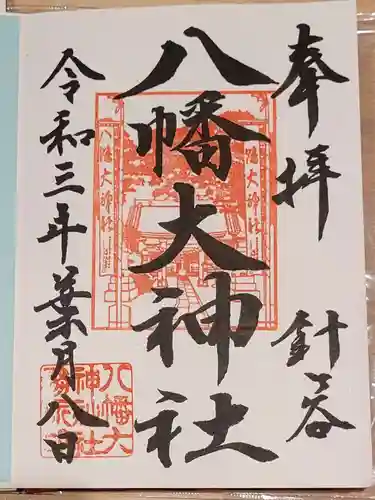 奉拝
針谷
八幡大神社
令和三年葉月八日
八幡大神社
八幡大神社